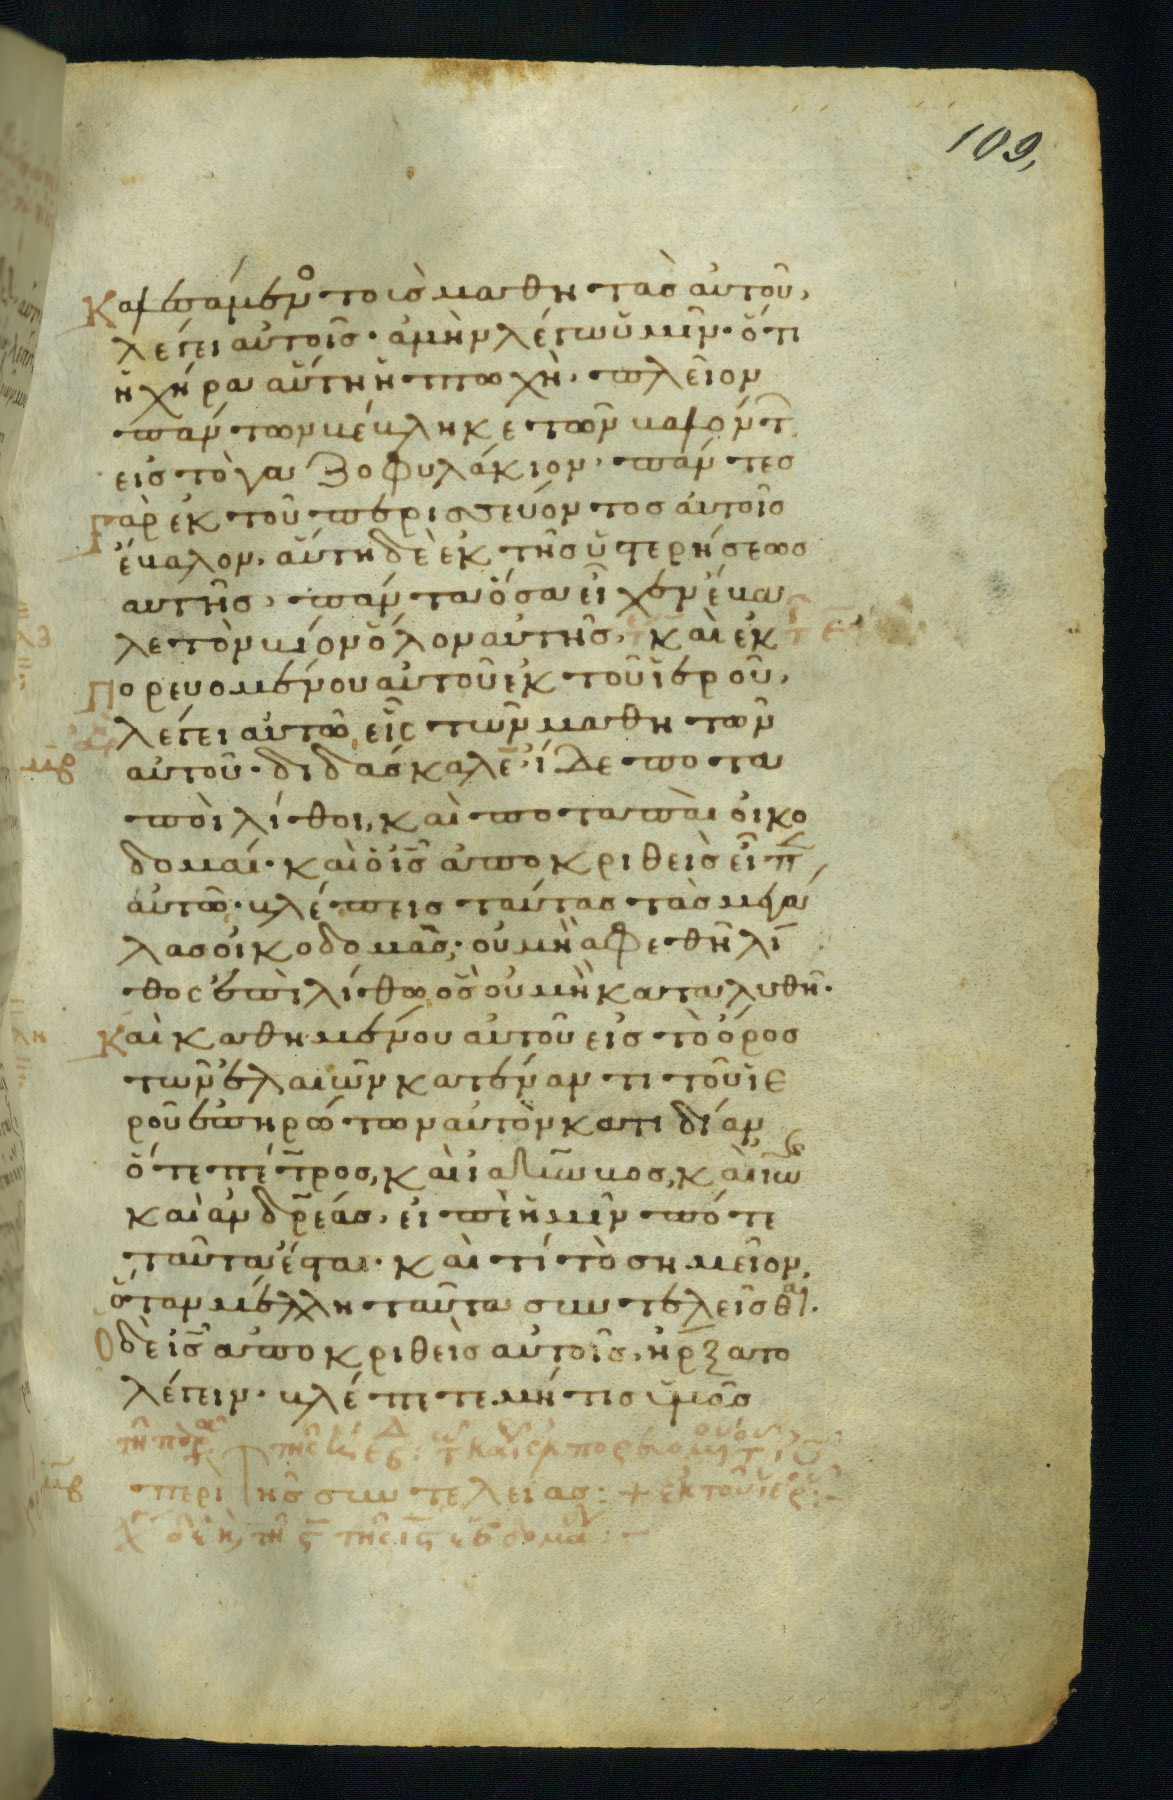 109,
Καὶ πάμενος τοὺς μαθητὰς αὐτοῦ,
λέγει αὐτοῖς· ἀμὴν λέγω ὑμῖν· ὅτι
ἡ χήρα αὕτη ἡ πτωχὴ, πλεῖον
πάντων βέβληκε τῶν βαλόντ
εἰς τὸ γαζοφυλάκιον, πάντες
Γὰρ ἐκ τοῦ περισσεύοντος αὐτοῖς
ἔβαλον, αὕτη δὲ ἐκ τῆς ὑστερήσεως
αυτῆς, πάντα ὅσα εἶχεν ἔβα
λε τὸν βίον ὅλον αὐτῆς, Καὶ ἐκ
Πορευομένου αὐτοῦ ἐκ τοῦ ἱεροῦ,
λέγει αὐτῶ εἷς τῶν μαθητῶν
αὐτοῦ· διδάσκαλε, ἴδε ποτα
ποὶ λίθοι, καὶ ποταπαὶ οἰκο
δομαί· καὶ ὁ ις̄ ἀποκριθεὶς εἶπ
αὐτῶ· βλέπεις ταύτας τὰς μεγά
λας οἰκοδομάς; οὐ μὴ ἀφεθῆ λί
θος ἐπὶ λίθω ὃς οὐ μὴ καταλυθῆ·
Καὶ καθημένου αὐτοῦ εἰς τὸ ὄρος
τῶν ἐλαιῶν κατέναντι τοῦ ἱε
ροῦ ἐπηρώτων αὐτὸν κατιδίαν
ὅτε πέτρος, καὶ ἰάκωβος, καὶ ἰω
καὶ ἀνδρέας, εἰπὲ ἡμῖν πότε
ταῦτα ἔσται· καὶ τί τὸ σημεῖον,
ὅταν μέλλη ταῦτα συντελεῖσθαι·
Ὁ δὲ ις̄ ἀποκριθεὶς αὐτοῖς, ἤρξατο
λέγειν· βλέπετε μή τις ὑμᾶς
περὶ τῆς συντελείας: + ἐκ τοῦ ἱερ